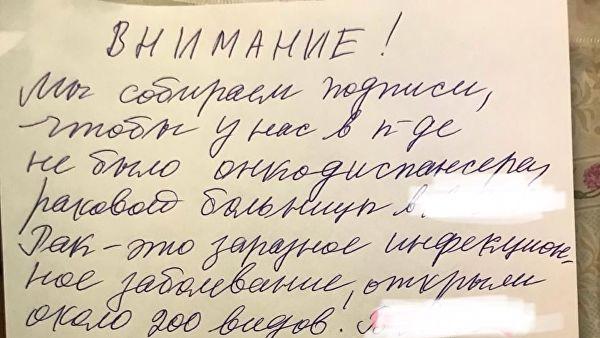 ВНИМАНИЕ!
Мы собираем подписи,
чтобы у нас в п-де
не было онкодиспансера,
раковой больницы в
Рак – это заразное инфекцион-
ное заболевание, открыли
около 200 видов!